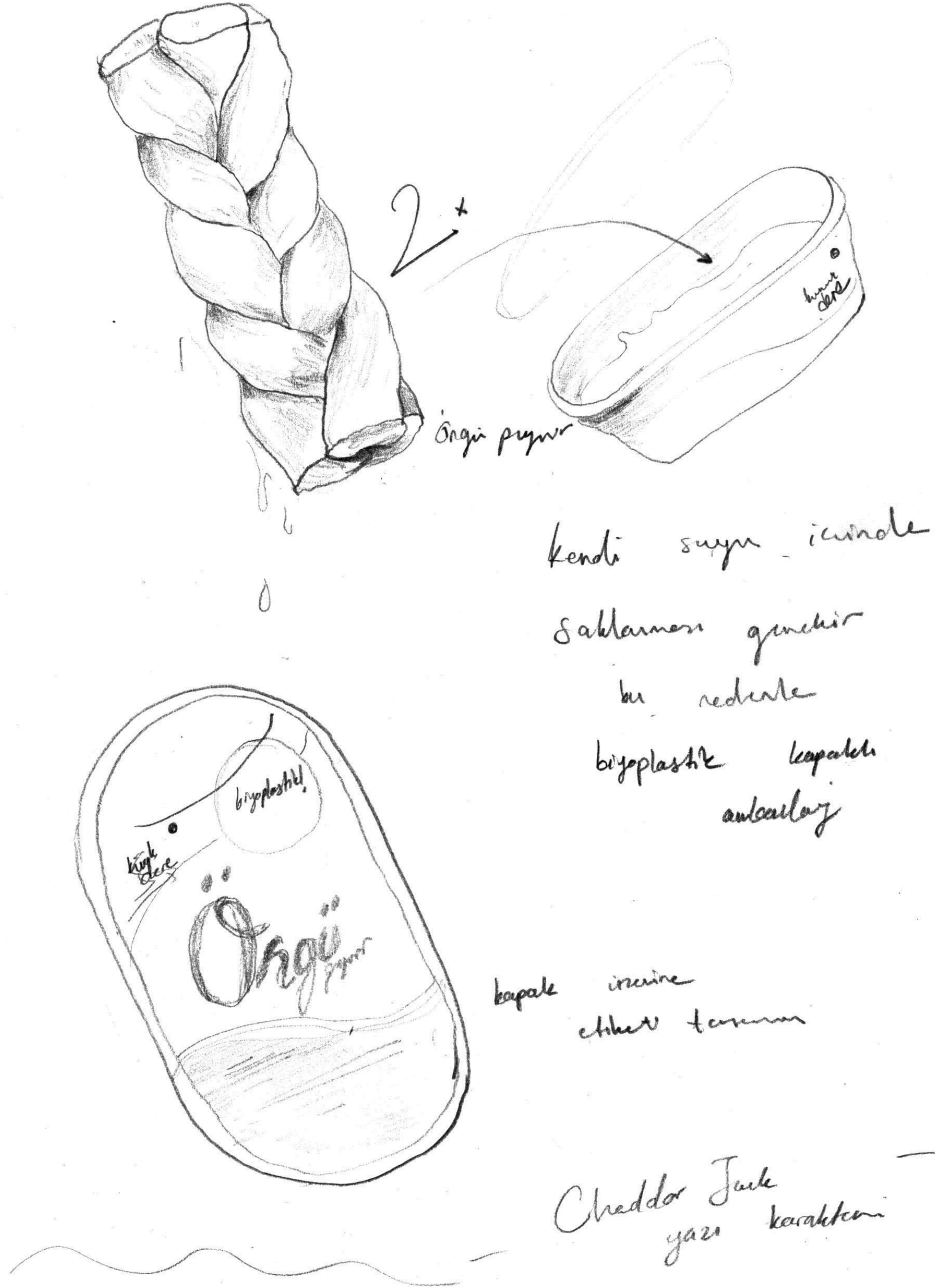 2x
küçük
dere
örgü peynir
kendi suyu içinde
saklanması gerekir
bu nedenle
biyoplastik kapaklı
ambalaj
biyoplastik!
küçük
dere
Örgü
peynir
kapak üzerine
etiket tasarımı
Cheddar Jack
yazı karakteri